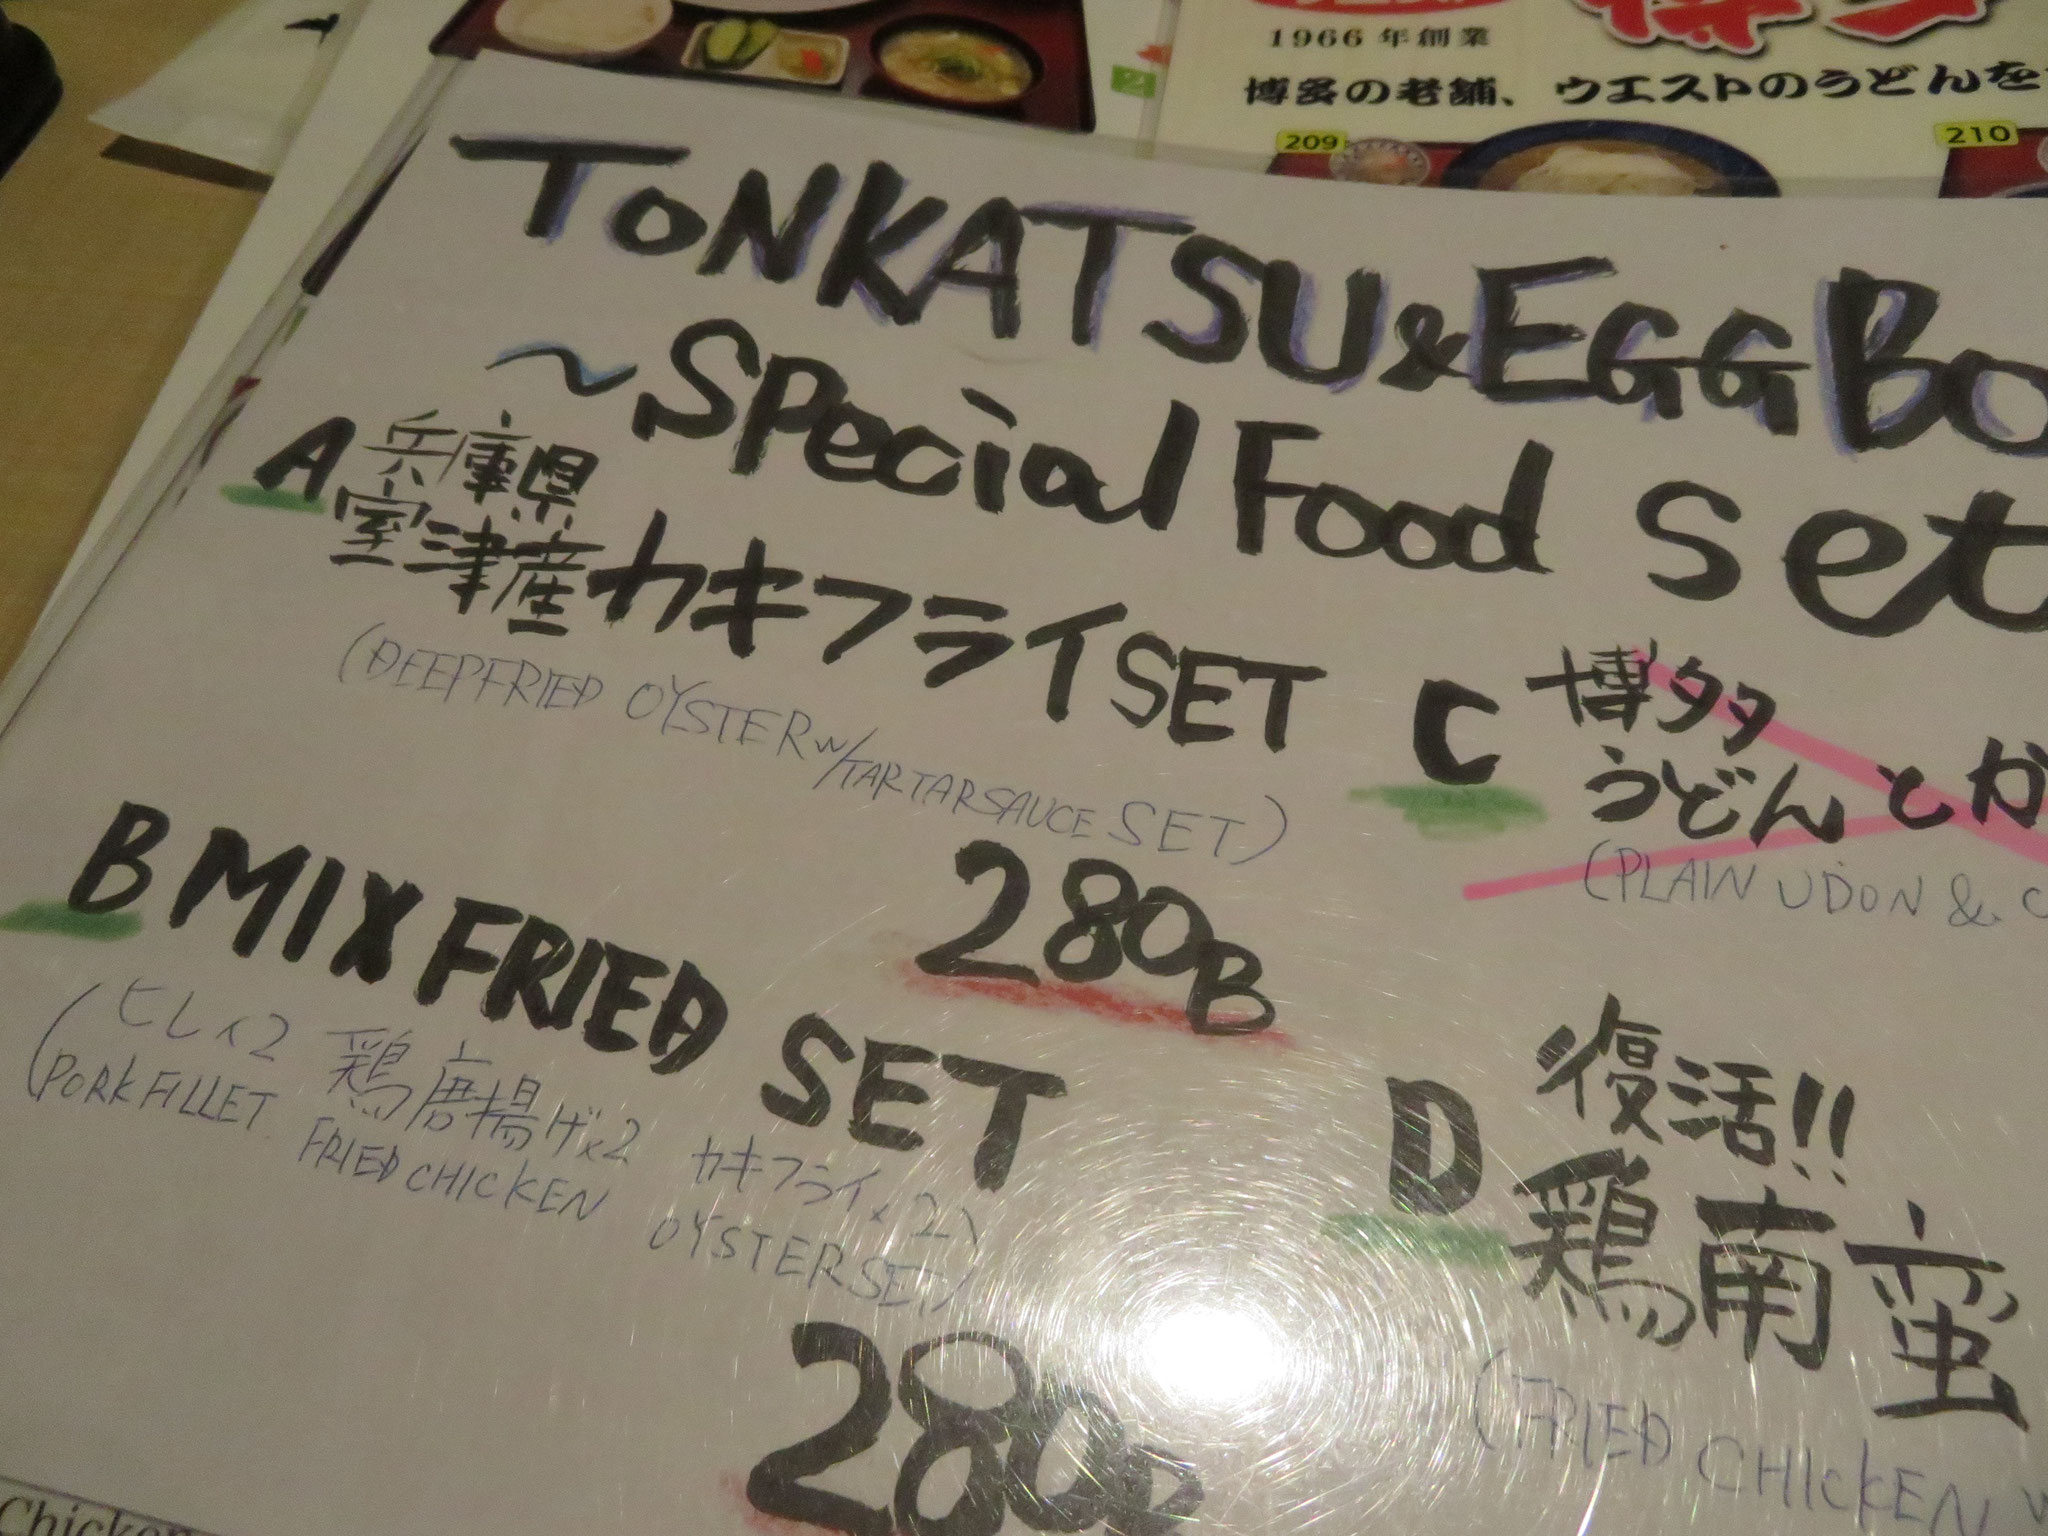 1966年創業
博多の老舗、ウエストのうどんを
209
210
TONKATSU & EGG BO
~Special Food Set
A 兵庫県
室津産カキフライSET
(DEEPFRIED OYSTER w/TARTARSAUCE SET)
280B
B MIX FRIED SET
(ヒレ×2 鶏唐揚げ×2 カキフライ×2)
PORK FILLET FRIED CHICKEN OYSTER SET)
280B
C 博多
うどんとか
(PLAIN UDON & C
D 復活!!
鶏南蛮
(FRIED CHICKEN w
Chicken